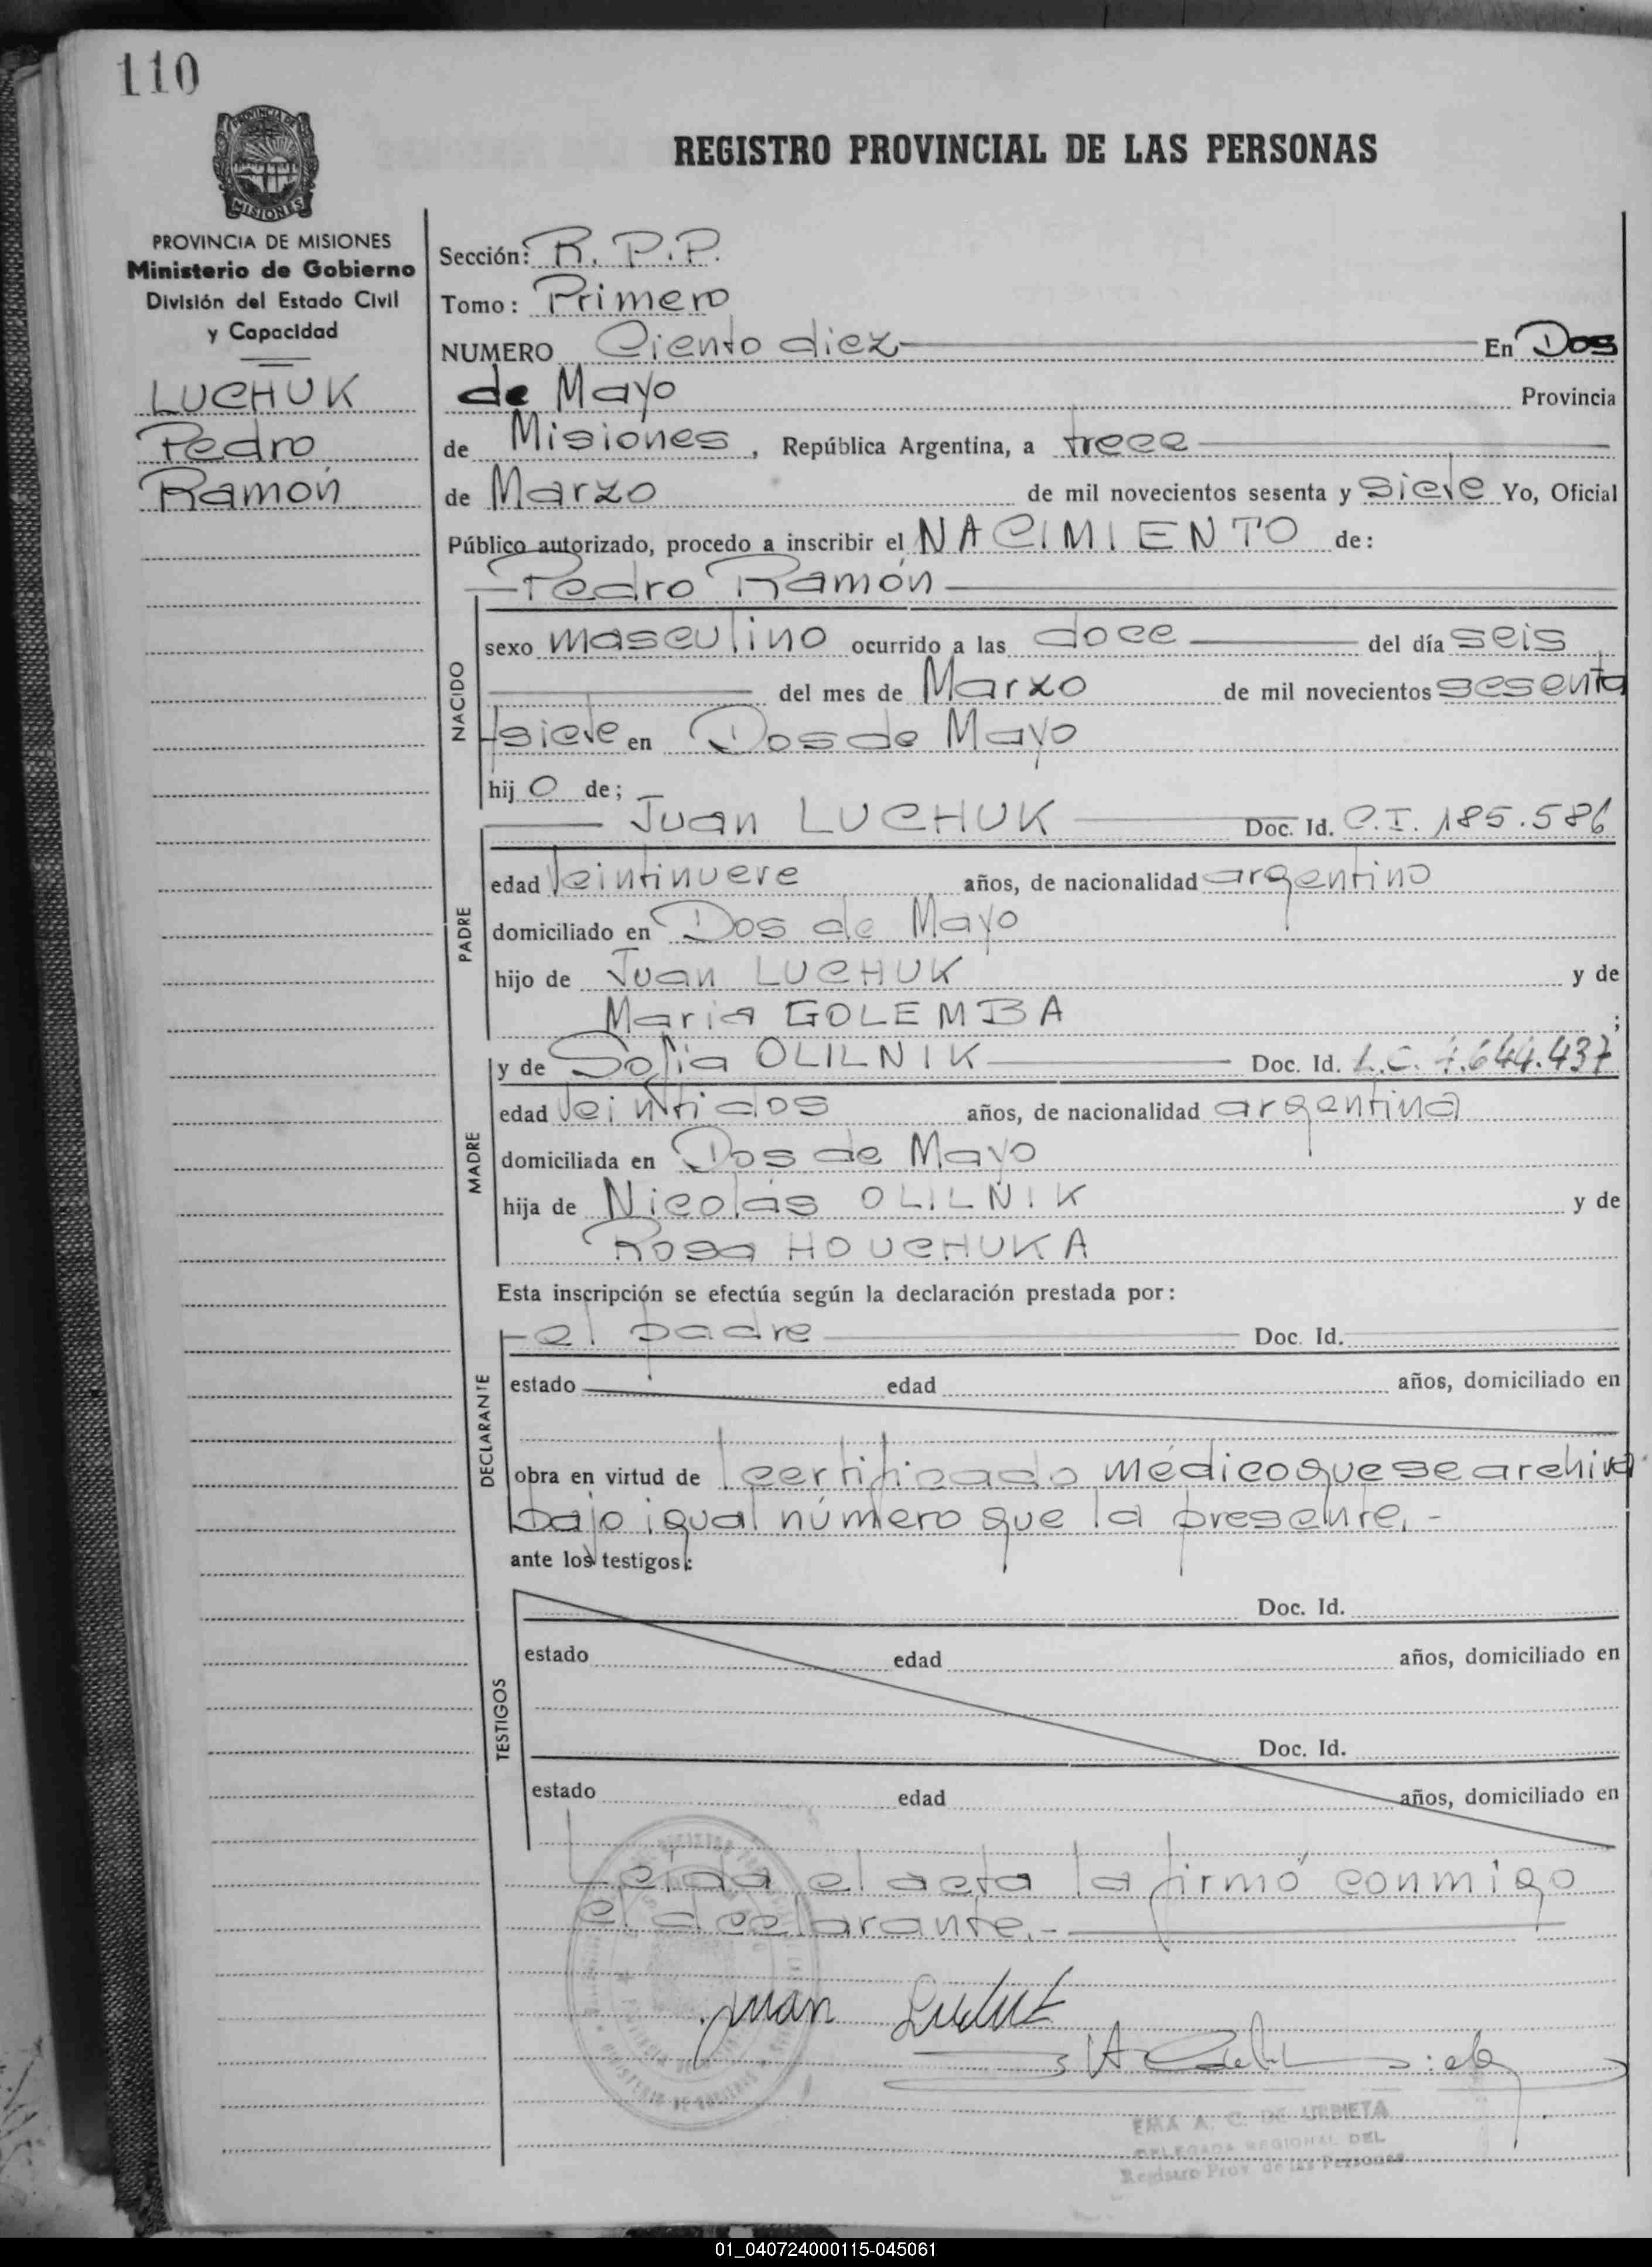 110
REGISTRO PROVINCIAL DE LAS PERSONAS
PROVINCIA DE MISIONES
Ministerio de Gobierno
División del Estado Civil
y Capacidad
LUCHUK
Pedro
Ramón
Sección: R. P. P.
Tomo: Primero
NUMERO Ciento diez En Dos
de Mayo Provincia
de Misiones, República Argentina, a trece
de Marzo de mil novecientos sesenta y siete Yo, Oficial
Público autorizado, procedo a inscribir el NACIMIENTO de:
Pedro Ramón
NACIDO
sexo masculino ocurrido a las doce del día seis
del mes de Marzo de mil novecientos sesenta
y siete en Dos de Mayo
hijo de;
PADRE
Juan LUCHUK Doc. Id. C.I. 185.586
edad veintinueve años, de nacionalidad argentino
domiciliado en Dos de Mayo
hijo de Juan LUCHUK y de
Maria GOLEMBA ;
MADRE
y de Sofia OLILNIK Doc. Id. L.C. 4.644.437
edad veintidos años, de nacionalidad argentina
domiciliada en Dos de Mayo
hija de Nicolás OLILNIK y de
Rosa HOUCHUKA
Esta inscripción se efectúa según la declaración prestada por:
DECLARANTE
el padre Doc. Id.
estado edad años, domiciliado en
obra en virtud de certificado médico que se archiva
bajo igual número que la presente.-
ante los testigos:
TESTIGOS
Doc. Id.
estado edad años, domiciliado en
Doc. Id.
estado edad años, domiciliado en
Leida el acta la firmó conmigo
el declarante.-
Juan Luchuk
EMA A. C. DE URBIETA
DELEGADA REGIONAL DEL
Registro Prov. de las Personas
01_040724000115-045061